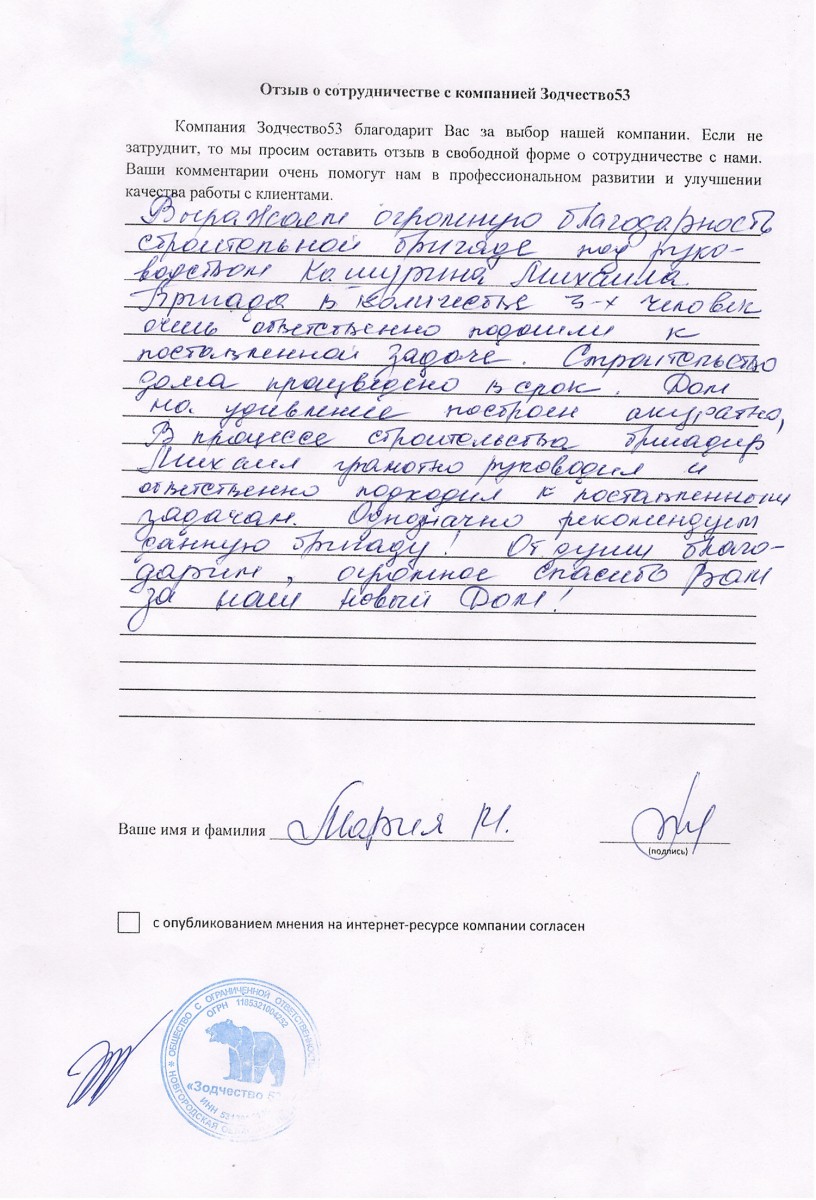 Отзыв о сотрудничестве с компанией Зодчество53
Компания Зодчество53 благодарит Вас за выбор нашей компании. Если не
затруднит, то мы просим оставить отзыв в свободной форме о сотрудничестве с нами.
Ваши комментарии очень помогут нам в профессиональном развитии и улучшении
качества работы с клиентами.
Выражаем огромную благодарность
строительной бригаде под руко-
водством Кашурина Михаила.
Бригада в количестве 3-х человек
очень ответственно подошли к
поставленной задаче. Строительство
дома произведено в срок. Дом
на удивление построен акуратно,
В процессе строительства бригадир
Михаил грамотно руководил и
ответственно подходил к поставленным
задачам. Однозначно рекомендуем
данную бригаду! От души благо-
дарим, огромное спасибо Вам
за наш новый Дом!
Ваше имя и фамилия Мария И.
(подпись)
с опубликованием мнения на интернет-ресурсе компании согласен
ОБЩЕСТВО С ОГРАНИЧЕННОЙ ОТВЕТСТВЕННОСТЬЮ
ОГРН 1105321004252
«Зодчество
ИНН
НОВГОРОДСКАЯ